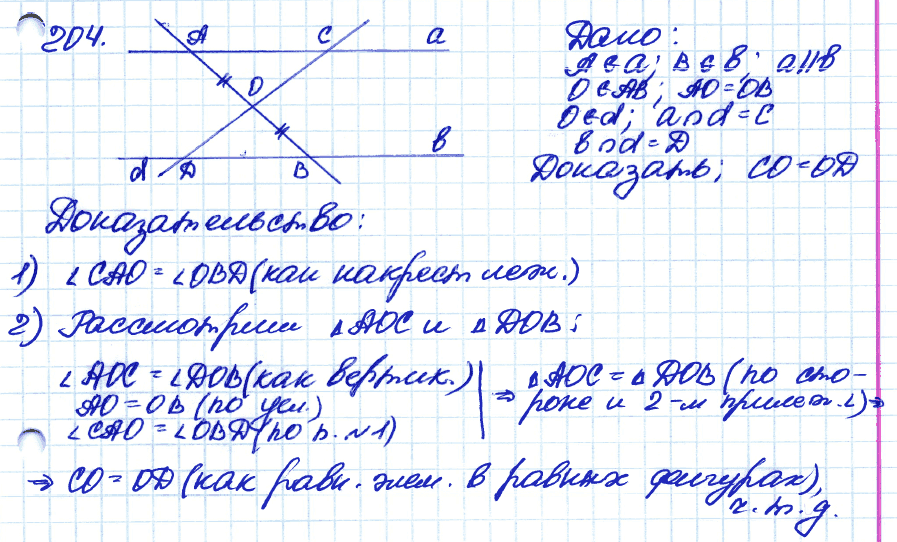 204.
A C a
O
b
d D B
Дано:
A ∈ a; B ∈ b; a || b
O ∈ AB; AO = OB
O ∈ d; a ∩ d = C
b ∩ d = D
Доказать; CO = OD
Доказательство:
1) ∠CAO = ∠OBD (как накрест леж.)
2) Рассмотрим △AOC и △DOB:
∠AOC = ∠DOB (как вертик.)
AO = OB (по усл.)
∠CAO = ∠OBD (по п. №1)
⇒ △AOC = △DOB (по сто-
роне и 2-м прилеж. ∠) ⇒
⇒ CO = OD (как равн. элем. в равных фигурах),
ч.т.д.